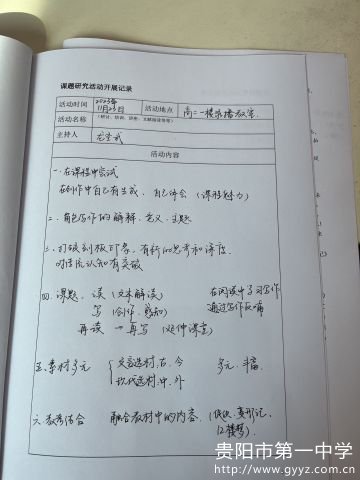 课题研究活动开展记录
活动时间 2023年11月23日 活动地点 高二一楼录播教室
活动名称 (研讨、培训、讲座、文献阅读等等)
主持人
活动内容
一.在课程中尝试
在创作中自己有生成、自己体会(课程魅力)
二、角色写作的解释、意义、主题
三、打破刻板印象、有新的思考和
对传统认知有突破
四.课题、读(文本解读) 在阅读中学习写作
写(创作、感知) 通过写作反哺
再读一再写(延伸课堂)
五、素材多元 文言选材、古、今 多元、丰富.
现代选材、中、外
六、教考结合 融合教材中的内容、(促织、变形记、
红楼梦).
贵阳市第一中学
http://www.gyyz.com.cn